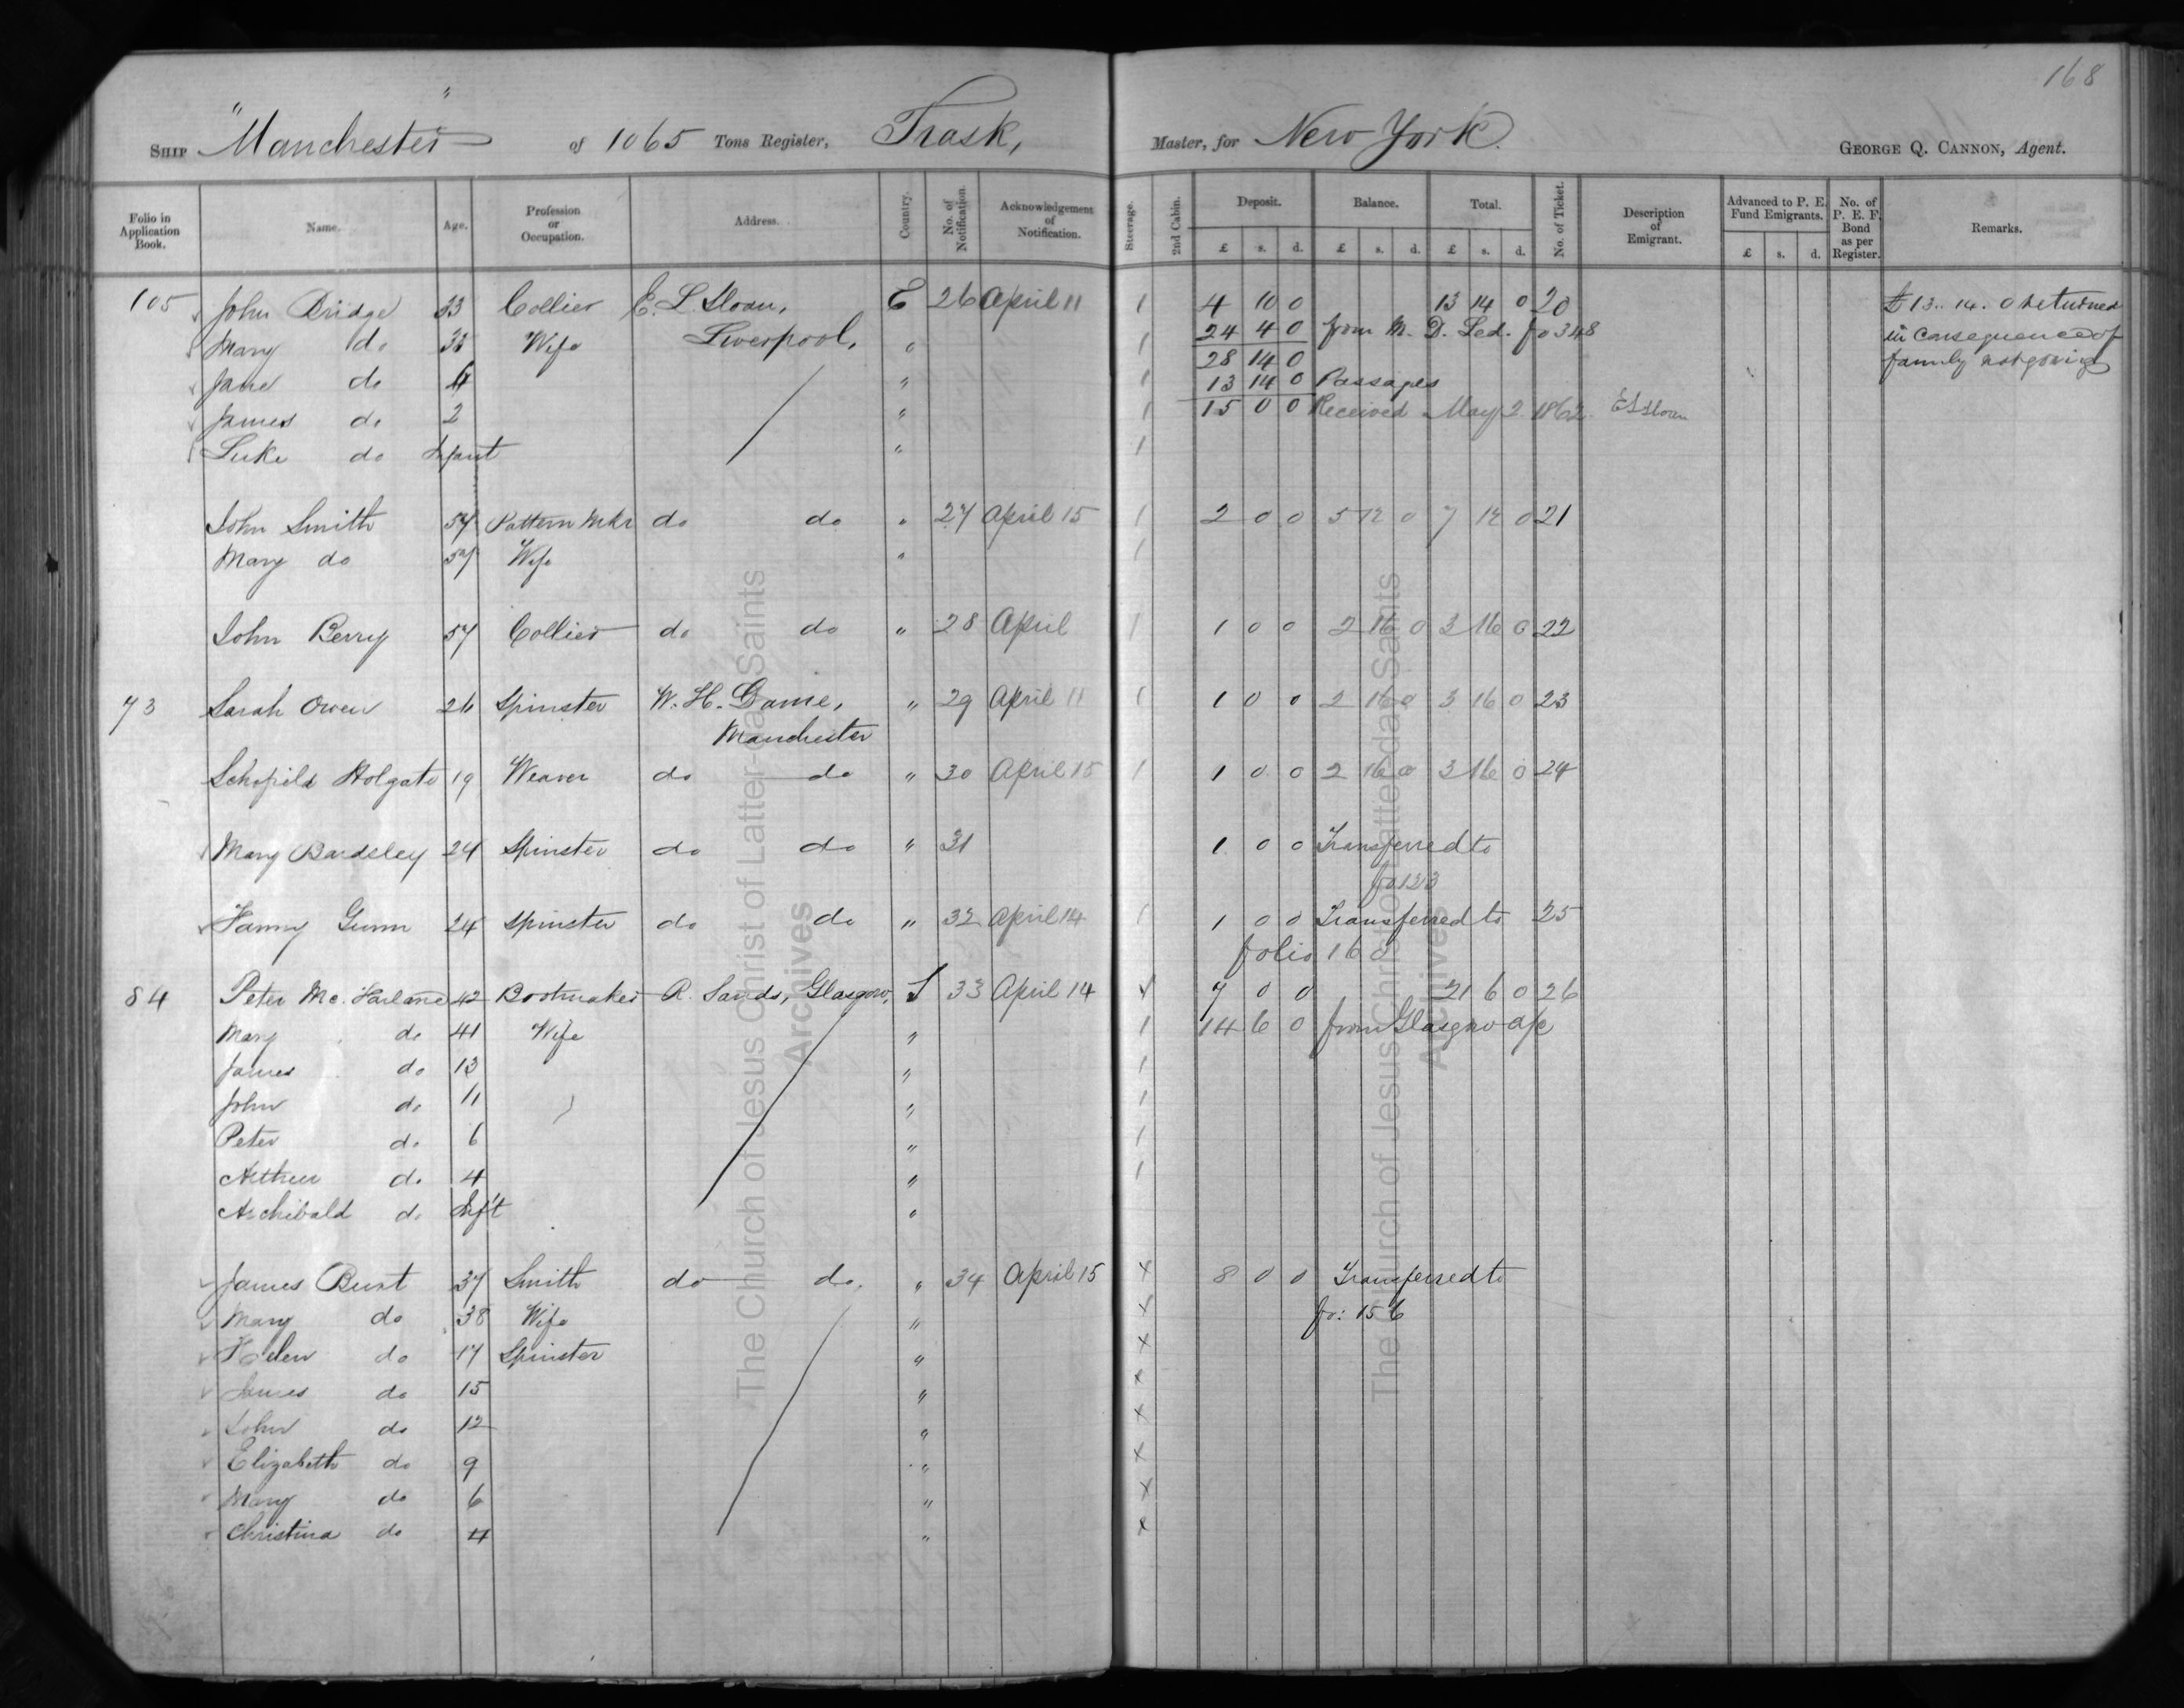 168
Ship "Manchester" of 1065 Tons Register, Trask, Master, for New York. George Q. Cannon, Agent.
Folio in Application Book. Name. Age. Profession or Occupation. Address. Country. No. of Notification. Acknowledgement of Notification. Steerage. 2nd Cabin. Deposit. Balance. Total. No. of Ticket. Description of Emigrant. Advanced to P. E. Fund Emigrants. No. of P. E. F. Bond as per Register. Remarks.
£ s. d. £ s. d. £ s. d. £ s. d.
105 John Bridge 33 Collier E. L. Sloan, E 26 April 11 1 4 10 0 13 14 0 20 £13.. 14. 0 returned
Mary do 33 Wife Liverpool, " 1 24 4 0 from M. D. Led. fo 348 in consequence of
28 14 0 family not going
Jane do 4 " 1 13 14 0 Passages
James do 2 " 1 15 0 0 Received May 2 1862. E L Sloan
Luke do Infant " 1
John Smith 57 Pattern Mkr do do " 27 April 15 1 2 0 0 5 12 0 7 12 0 21
Mary do 57 Wife " 1
John Berry 57 Collier do do " 28 April 1 1 0 0 2 16 0 3 16 0 22
73 Sarah Owen 26 Spinster W. H. Game, " 29 April 11 1 1 0 0 2 16 0 3 16 0 23
Manchester
Schofield Holgate 19 Weaver do do " 30 April 15 1 1 0 0 2 16 0 3 16 0 24
Mary Bardsley 24 Spinster do do " 31 1 0 0 Transferred to
fo 123
Fanny Gunn 24 Spinster do do " 32 April 14 1 1 0 0 Transferred to 25
folio 160
84 Peter Mc. Farlane 42 Bootmaker R. Sands, Glasgow, S 33 April 14 1 7 0 0 21 6 0 26
Mary do 41 Wife " 1 14 6 0 from Glasgow a/c
James do 13 " 1
John do 11 " 1
Peter do 6 " 1
Arthur do 4 " 1
Archibald do Inf't "
James Bunt 37 Smith do do. " 34 April 15 x 8 0 0 Transferred to
Mary do 38 Wife " x fo: 156
Helen do 17 Spinster " x
James do 15 " x
John do 12 " x
Elizabeth do 9 " x
Mary do 6 " x
Christina do 4 " x
The Church of Jesus Christ of Latter-day Saints
Archives
The Church of Jesus Christ of Latter-day Saints
Archives